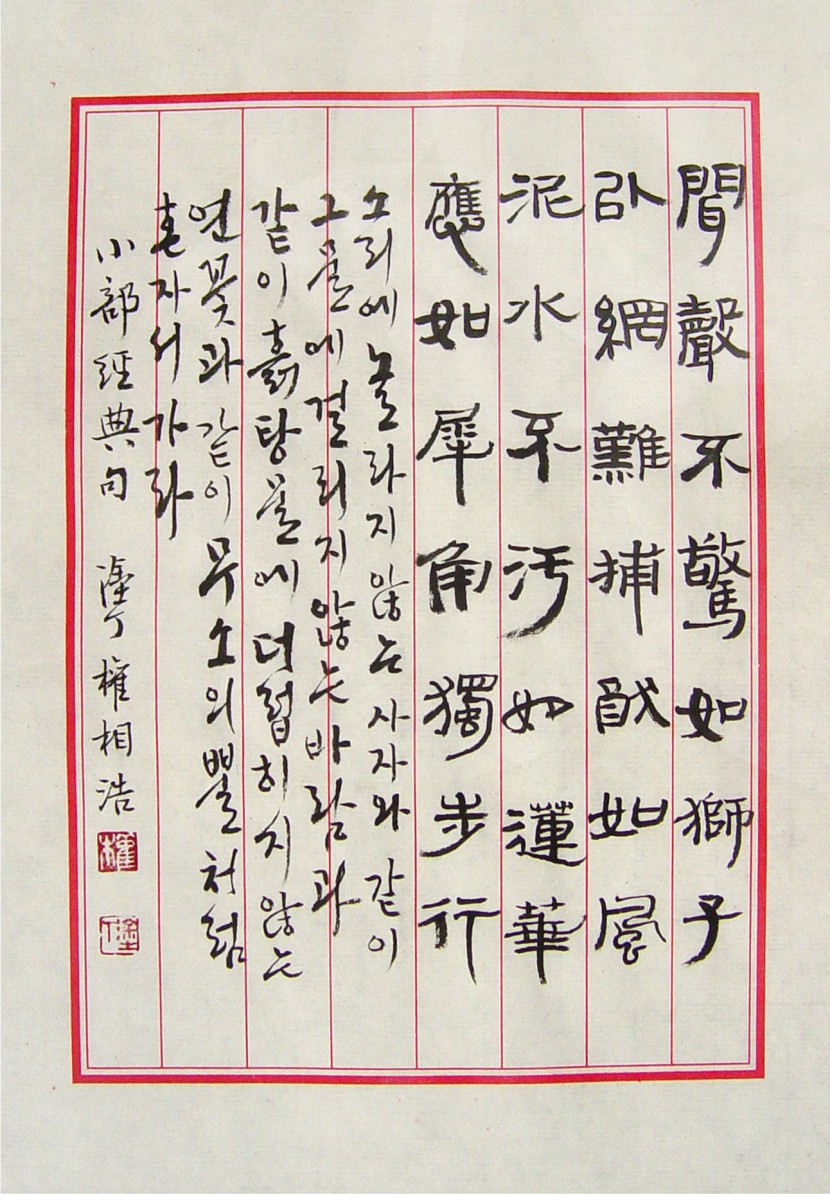 聞聲不驚如獅子
以網難捕猷如風
泥水不汚如蓮華
應如犀角獨步行
소리에 놀라지 않는 사자와 같이
그물에 걸리지 않는 바람과
같이 흙탕물에 더럽히지 않는
연꽃과 같이 무소의 뿔처럼
혼자서 가라
小部經典句 塗丁 權相浩
權
塗丁